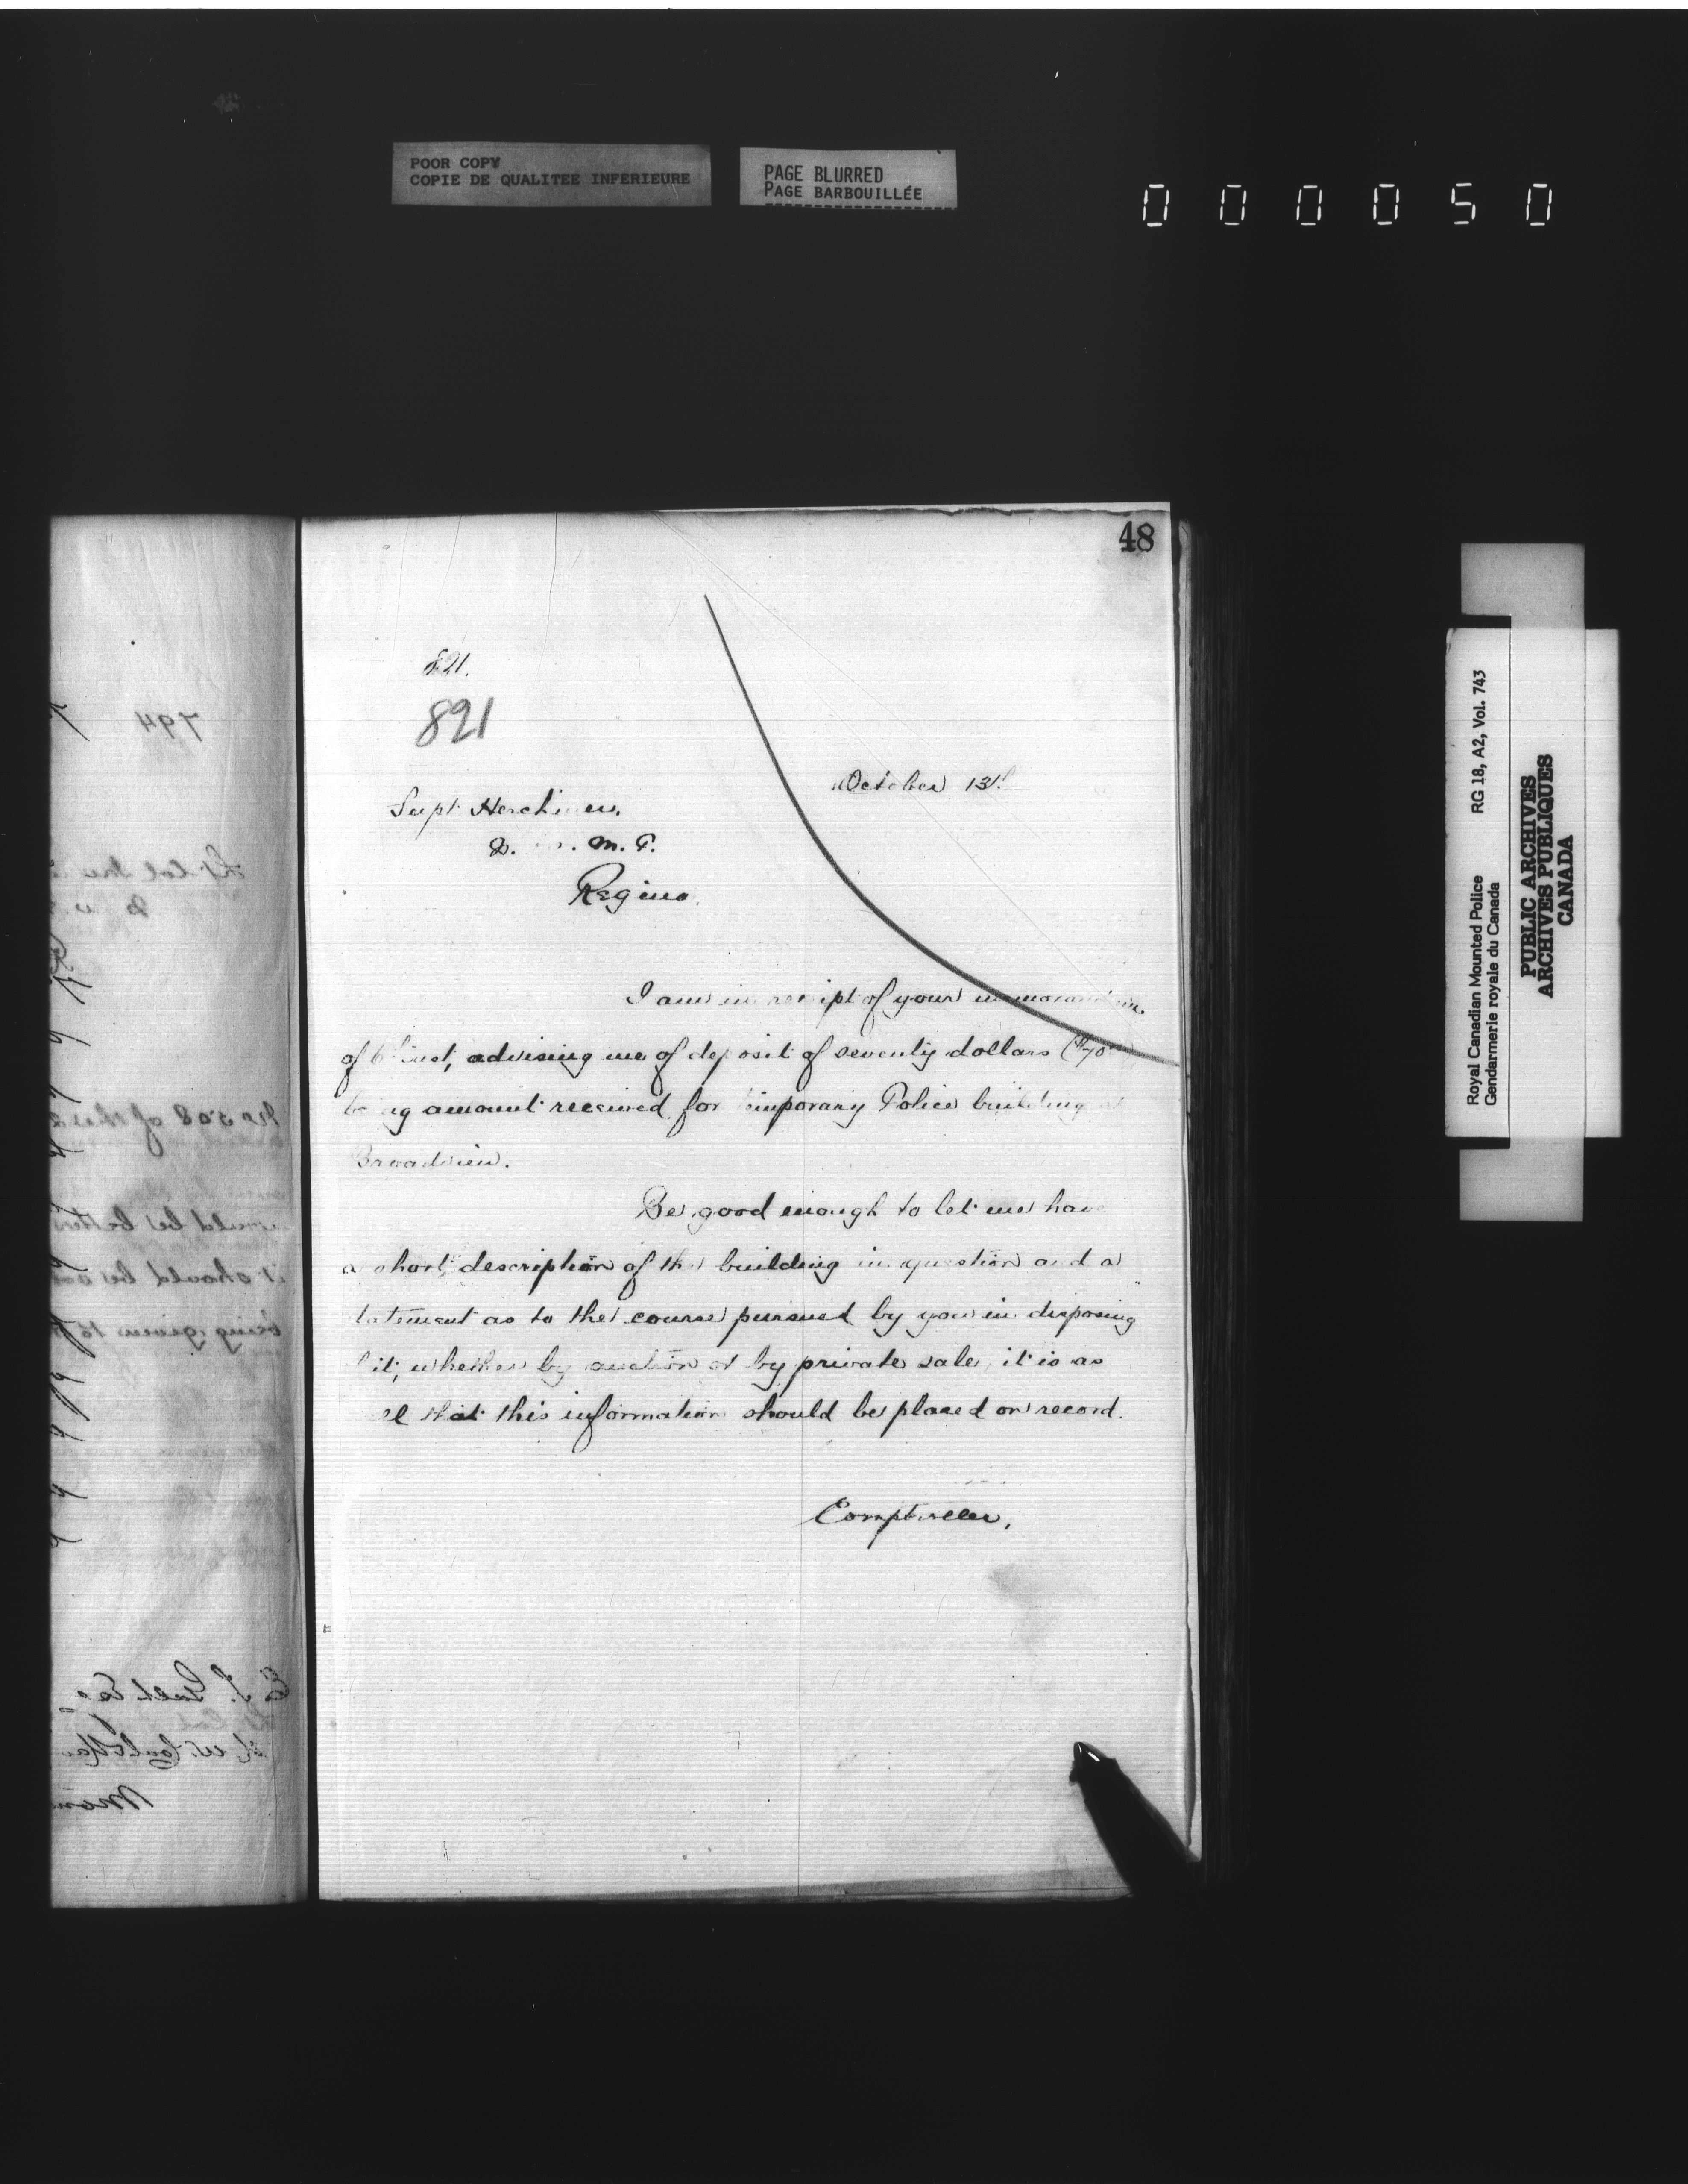 POOR COPY
COPIE DE QUALITEE INFERIEURE
PAGE BLURRED
PAGE BARBOUILLÉE
000050
48
821.
821
October 13th
Supt Herchmer.
M. P.
Regina.
I am in receipt of your memorandum
of 6th inst, advising me of deposit of seventy dollars ($70
being amount received for temporary Police building at
Broadview.
Be good enough to let me have
a short description of the building in question and a
statement as to the course pursued by you in disposing
of it, whether by auction or by private sale, it is as
well that this information should be placed on record.
Comptroller,
794
Lt Col
No 508 of the
would be better
it should be
being given to
E. J. Galt Esq
N. W. Coal &
Royal Canadian Mounted Police RG 18, A2, Vol. 743
Gendarmerie royale du Canada
PUBLIC ARCHIVES
ARCHIVES PUBLIQUES
CANADA